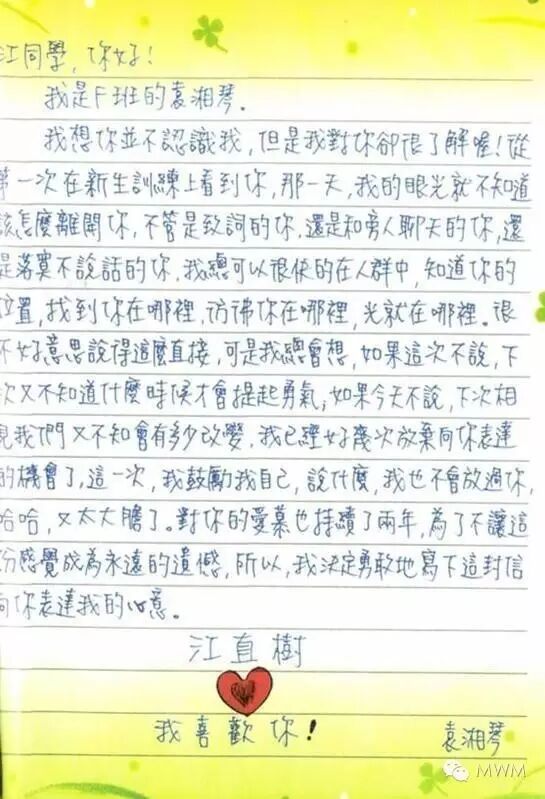 江同學，你好！
我是F班的袁湘琴．
我想你並不認識我，但是我對你卻很了解喔！從
第一次在新生訓練上看到你，那一天，我的眼光就不知道
該怎麼離開你，不管是致詞的你，還是和旁人聊天的你，還
是落寞不說話的你，我總可以很快的在人群中，知道你的
位置，找到你在哪裡，彷彿你在哪裡，光就在哪裡。很
不好意思說得這麼直接，可是我總會想，如果這次不說，下
次又不知道什麼時候才會提起勇氣；如果今天不說，下次相
見我們又不知會有多少改變．我已經好幾次放棄向你表達
的機會了，這一次，我鼓勵我自己，說什麼，我也不會放過你，
哈哈，又太大膽了。對你的愛慕也持續了兩年，為了不讓這
份感覺成為永遠的遺憾，所以，我決定勇敢地寫下這封信
向你表達我的心意。
江直樹
我喜歡你！
袁湘琴
MWM